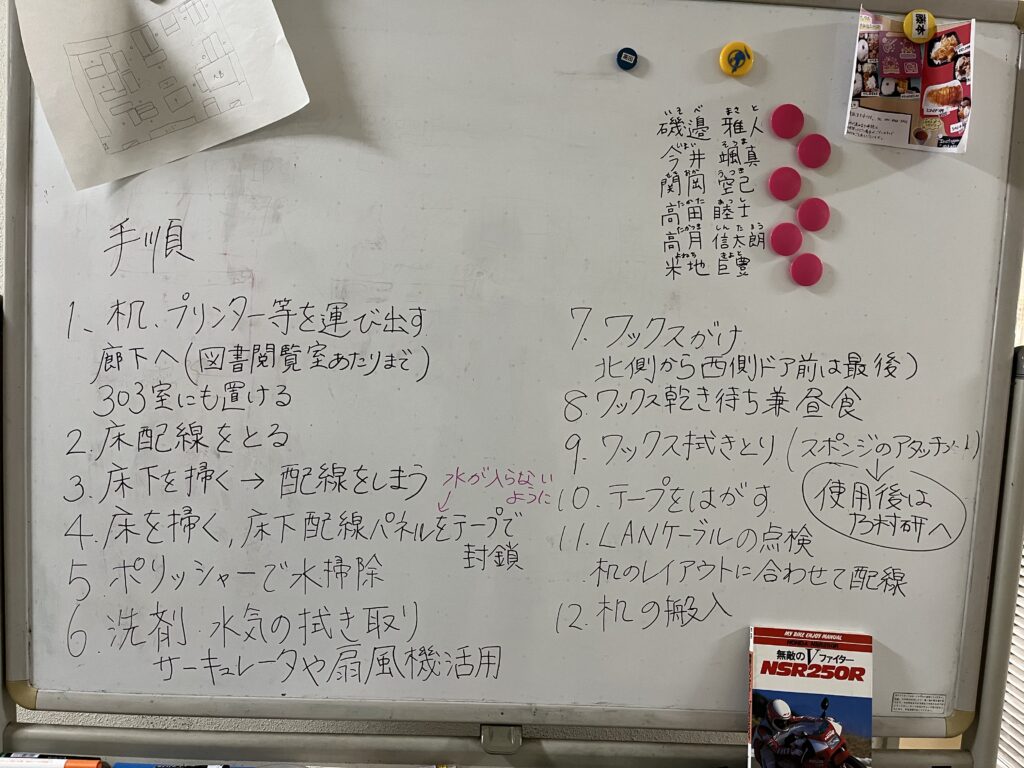 手順
1、机、プリンター等を運び出す
廊下へ(図書閲覧室あたりまで)
303室にも置ける
2.床配線をとる
3.床下を掃く→配線をしまう
水が入らない
ように
4.床を掃く,床下配線パネルをテープで
封鎖
5 ポリッシャーで水掃除
6.洗剤 水気の拭き取り
サーキュレータや扇風機活用
7.ワックスがけ
北側から西側ドア前は最後)
8.ワックス乾き待ち兼昼食
9.ワックス拭きとり(スポンジのアタッチメント)
使用後は
乃村研へ
10.テープをはがす
11.LANケーブルの点検
机のレイアウトに合わせて配線
12.机の搬入
いそべ まさと
磯邉 雅人
今井 颯真
関岡 空己
たかた
高田 睦士
たかつき しんたろう
高月 信太朗
米地 巨豊
藤本
MY BIKE ENJOY MANUAL
無敵のVファイター
NSR250R